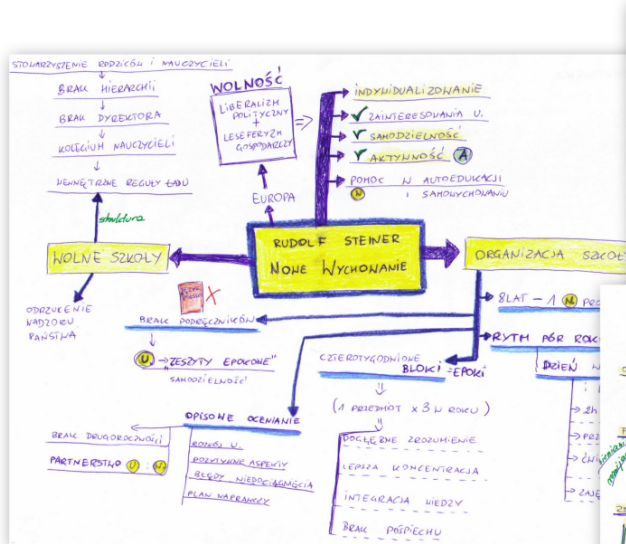 STOWARZYSZENIE RODZICÓW I NAUCZYCIELI
BRAK HIERARCHII
BRAK DYREKTORA
KOLEGIUM NAUCZYCIELI
WEWNĘTRZNE REGUŁY ŁADU
struktura
WOLNE SZKOŁY
ODRZUCENIE
NADZORU
PAŃSTWA
WOLNOŚĆ
LIBERALIZM
POLITYCZNY
+
LESEFERYZM
GOSPODARCZY
EUROPA
INDYWIDUALIZOWANIE
ZAINTERESOWANIA U.
SAMODZIELNOŚĆ
AKTYWNOŚĆ A
POMOC W AUTOEDUKACJI
N I SAMOWYCHOWANIU
RUDOLF STEINER
NOWE WYCHOWANIE
ORGANIZACJA
8 LAT – 1 N
RYTM PÓR
DZIEŃ
2h
BRAK PODRĘCZNIKÓW
U. → "ZESZYTY EPOKOWE"
SAMODZIELNOŚĆ
CZTEROTYGODNIOWE
BLOKI = EPOKI
(1 PRZEDMIOT x 3 W ROKU)
DOGŁĘBNE ZROZUMIENIE
LEPSZA KONCENTRACJA
INTEGRACJA WIEDZY
BRAK POŚPIECHU
OPISOWE OCENIANIE
ROZWÓJ U.
POZYTYWNE ASPEKTY
BŁĘDY NIEDOCIĄGNIĘCIA
PLAN NAPRAWCZY
BRAK DRUGOROCZNOŚCI
PARTNERSTWO U : N